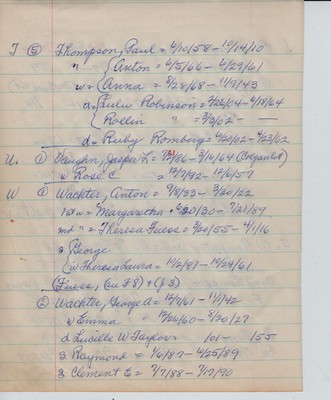 T ⑤ Thompson, Paul = 6/10/58 - 10/14/10
" { Anton = 6/5/66 - 6/29/61
w = { Anna = 8/28/68 - 11/9/43
d = { Lulu Robinson = 2/26/04 - 4/18/64
{ Rollin " = 3/3/02 -
d = Ruby Romberg = 6/20/02 - 4/23/62
U. ① Vaughn, Jasper L. = - 3/16/64
w Rose C = 12/7/92 - 12/6/57
W ① Wachter, Anton = 4/8/33 - 3/20/22
1st w = Margaretha = 6/20/30 - 7/21/89
2nd " = Theresa Fuess = 4/20/55 - 4/1/16
s { George
{ w Theresa Laura = 10/2/87 - 10/24/61
(Fuess, (see F 8) + (J 3)
② Wachter, George A = 12/7/61 - 11/1/42
w Emma = 12/26/60 - 8/30/27
d Lucille W Taylor = 1901 - 1955
s Raymond = 1/6/87 - 4/25/89
s Clement E = 7/7/88 - 7/17/90